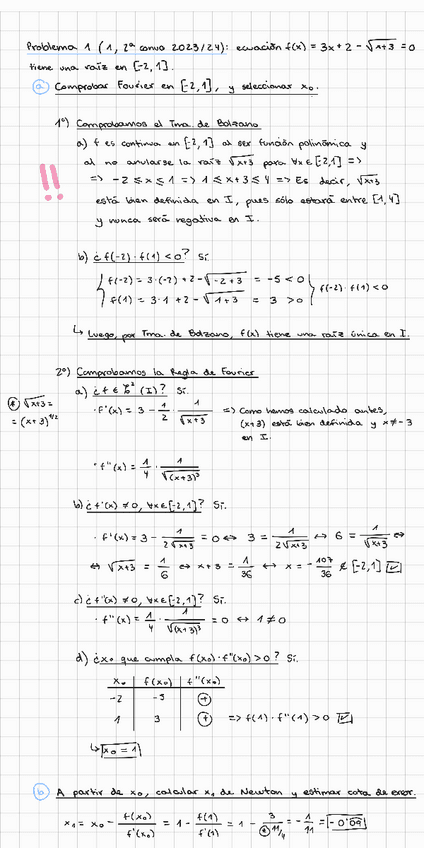 Problema 1 (1, 2ª convo 2023/24): ecuación f(x) = 3x+2 - √(x+3) = 0
tiene una raíz en [-2,1].
a) Comprobar Fourier en [-2,1], y seleccionar x₀.
1º) Comprobamos el Tma. de Bolzano
a) f es continua en [-2,1] al ser función polinómica y
al no anularse la raíz √(x+3) para ∀x∈[-2,1] =>
!! => -2 ≤ x ≤ 1 => 1 ≤ x+3 ≤ 4 => Es decir, √(x+3)
está bien definida en I, pues sólo estará entre [1,4]
y nunca será negativa en I.
b) ¿f(-2)·f(1) < 0? Sí.
f(-2) = 3·(-2)+2-√(-2+3) = -5 < 0
f(1) = 3·1+2-√(1+3) = 3 > 0 } f(-2)·f(1) < 0
↳ Luego, por Tma. de Bolzano, f(x) tiene una raíz única en I.
2º) Comprobamos la Regla de Fourier
a) ¿f ∈ C²(I)? Sí.
* √(x+3) = = (x+3)^1/2
· f'(x) = 3 - 1/2 · 1/√(x+3) => Como hemos calculado antes,
(x+3) está bien definida y x ≠ -3
en I.
· f''(x) = 1/4 · 1/√((x+3)³)
b) ¿f'(x) ≠ 0, ∀x∈[-2,1]? Sí.
· f'(x) = 3 - 1/(2√(x+3)) = 0 ↔ 3 = 1/(2√(x+3)) ↔ 6 = 1/√(x+3) ↔
↔ √(x+3) = 1/6 ↔ x+3 = 1/36 ↔ x = -107/36 ∉ [-2,1] ☑
c) ¿f''(x) ≠ 0, ∀x∈[-2,1]? Sí.
· f''(x) = 1/4 · 1/√((x+3)³) = 0 ↔ 1 ≠ 0
d) ¿x₀ que cumpla f(x₀)·f''(x₀) > 0? Sí.
x₀ | f(x₀) | f''(x₀)
-2 | -5 | +
1 | 3 | + => f(1)·f''(1) > 0 ☑
↳ x₀ = 1
b) A partir de x₀, calcular x₁ de Newton y estimar cota de error.
x₁ = x₀ - f(x₀)/f'(x₀) = 1 - f(1)/f'(1) = 1 - 3/(11/4) = -1/11 = -0'09